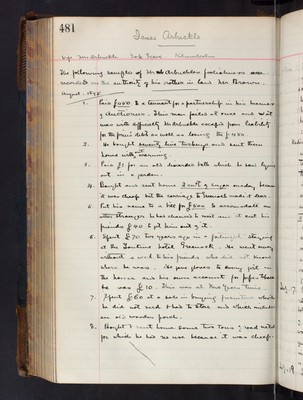 481
James Arbuckle
The following samples of Mr Arbuckle's foolishness are
recorded on the authority of his mother in law Mrs Brown.
August 1898
1. Paid £400 to a servant for a partnership in his business
of Auctioneer. This man failed at once and it
was with difficulty Mr Arbuckle escaped from liability
for the firm's debts as well as losing the £400.
2. He bought seventy live turkeys and sent them
home without warning.
3. Paid £1 for an old hoarded bath which he saw lying
out in a garden.
4. Bought and sent home 3 cwts of sugar one day because
it was cheap but the carriage to made it dear.
5. Put his name to a bill for £500 to accommodate an
utter stranger he had chanced to meet and it cost his
friends £40 to get him out of it.
6. Spent £70 two years ago in a fortnight staying
at the Tontine Hotel Greenock. He went away
without a word to his friends who did not know
where he was. He gave gloves to every girl in
the house and his own account for
was £10. This was at New Year time.
7. Spent £60 at a sale in buying furniture which
he did not need & had to store and which included
an old wooden porch.
8. Bought & sent home some two tons of road metal
for which he had no use because it was cheap.